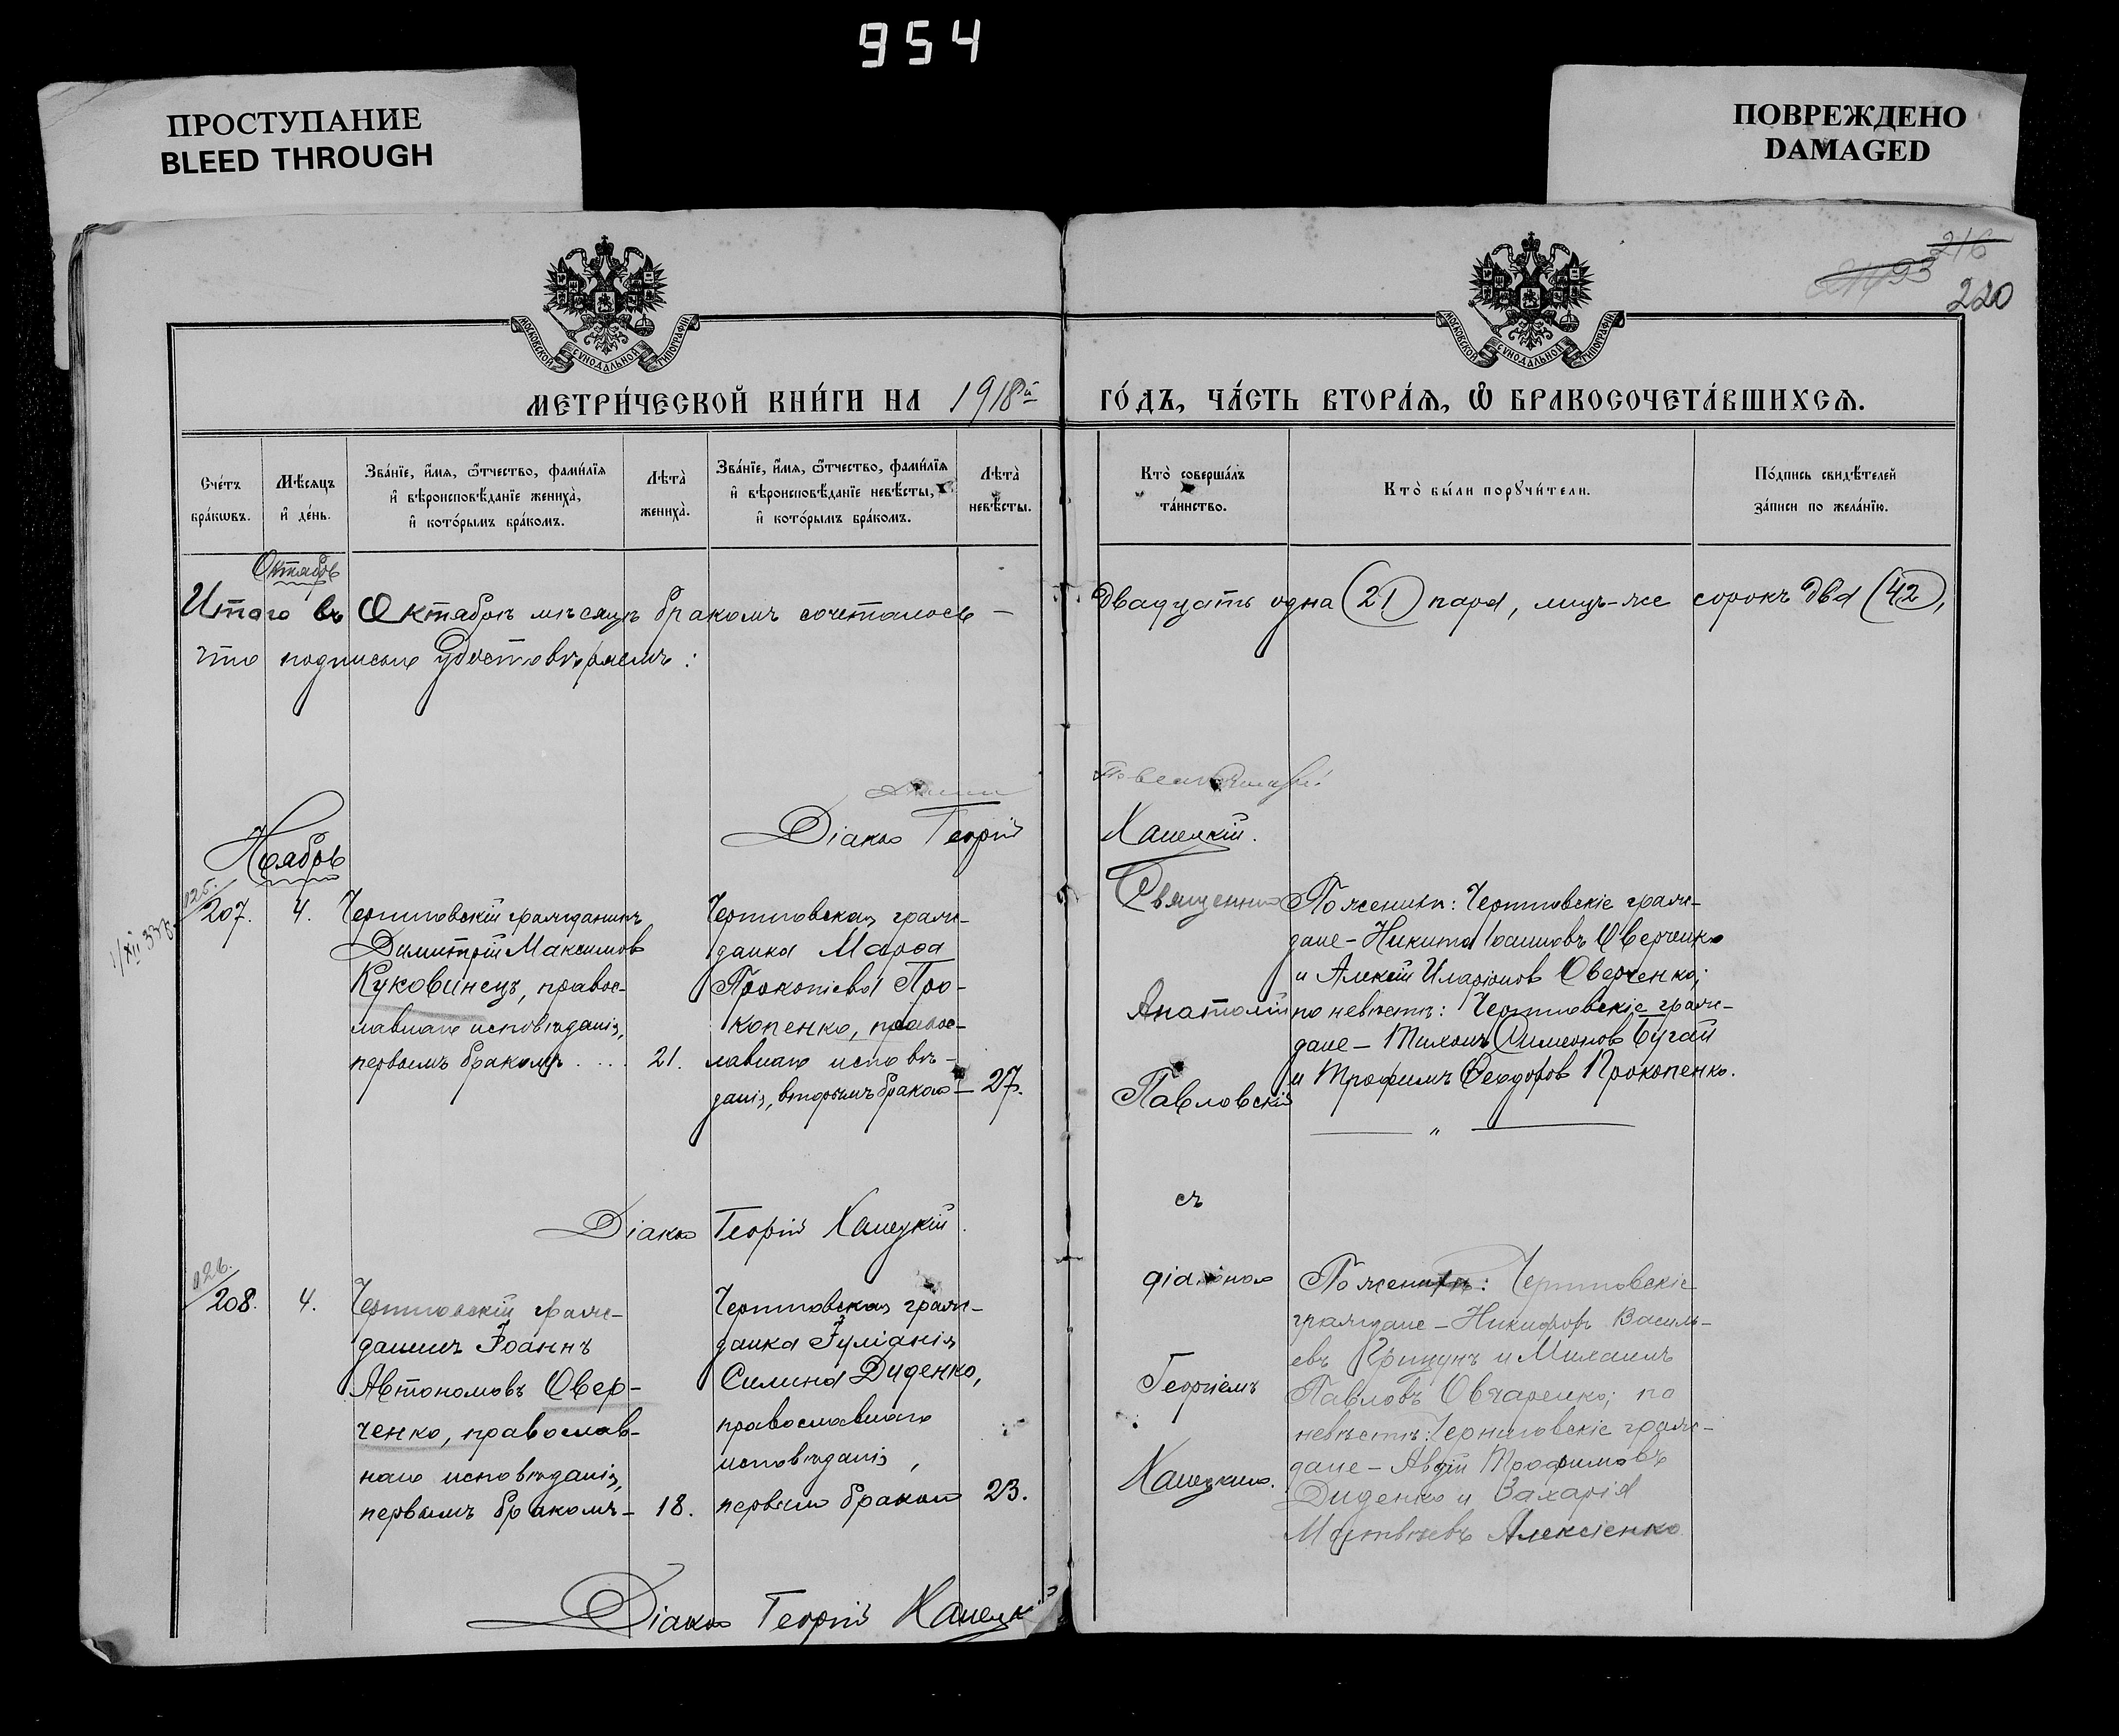 954
ПРОСТУПАНИЕ
BLEED THROUGH
ПОВРЕЖДЕНО
DAMAGED
216
220
МОСКОВСКОЙ СѴНОДАЛЬНОЙ ТИПОГРАФІИ
МОСКОВСКОЙ СѴНОДАЛЬНОЙ ТИПОГРАФІИ
МЕТРИ́ЧЕСКОЙ КНИ́ГИ НА 1918й ГО́ДЪ, ЧА́СТЬ ВТОРА́Ѧ, Ѽ БРАКОСОЧЕТА́ВШИХСѦ.
Сче́тъ бра́кѡвъ.
Мѣ́сѧцъ и҆ де́нь.
Зва́нїе, и҆́мѧ, ѻ҆́тчество, фами́лїѧ
и҆ вѣроисповѣ́данїе жениха̀,
и҆ кото́рымъ бра́комъ.
Лѣта̀ жениха̀.
Зва́нїе, и҆́мѧ, ѻ҆́тчество, фами́лїѧ
и҆ вѣроисповѣ́данїе невѣ́сты,
и҆ кото́рымъ бра́комъ.
Лѣта̀ невѣ́сты.
Кто̀ соверша́лъ
та́инство.
Кто̀ бы́ли порꙋчи́тели.
По́дпись свидѣ́телей
за́писи по жела́нїю.
Октябрь
Итого въ Октябрѣ мѣсяцѣ бракомъ сочеталось – двадцать одна (21) пара, лицъ-же сорокъ два (42),
что подписью удостовѣряемъ:
Діаконъ Георгій Ханецкій.
Ноябрь
125.
207.
4.
Черниговскій гражданинъ
Димитрій Максимовъ
Куковинецъ, правос-
лавнаго исповѣданія,
первымъ бракомъ . . . . 21.
Черниговская граж-
данка Марѳа
Прокопіева Про-
копенко, правос-
лавнаго исповѣ-
данія, вторымъ бракомъ – 27.
Священник
Анатолій
Павловскій
съ
діакономъ
Георгіемъ
Ханецкимъ.
По женихѣ: Черниговскіе граж-
дане – Никита Іоанновъ Оверченко
и Алексій Иларіоновъ Оверченко;
по невѣстѣ: Черниговскіе граж-
дане – Тихонъ Симеоновъ Бугай
и Трофимъ Ѳеодоровъ Прокопенко.
Діаконъ Георгій Ханецкій.
126.
208.
4.
Черниговскій граж-
данинъ Іоаннъ
Автономовъ Овер-
ченко, православ-
наго исповѣданія,
первымъ бракомъ – 18.
Черниговская граж-
данка Іуліанія
Силина Диденко,
православнаго
исповѣданія,
первымъ бракомъ 23.
По женихѣ: Черниговскіе
граждане – Никифоръ Василь-
евъ Грицунъ и Михаилъ
Павловъ Овчаренко; по
невѣстѣ: Черниговскіе граж-
дане – Авдій Трофимовъ
Диденко и Захарія
Матвѣевъ Алексіенко
Діаконъ Георгій Ханецкій